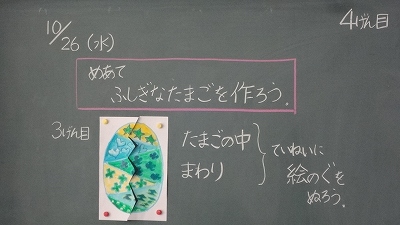 10/26(水)
4げん目
めあて
ふしぎなたまごを作ろう。
3げん目
たまごの中
まわり
ていねいに
絵のぐを
ぬろう。